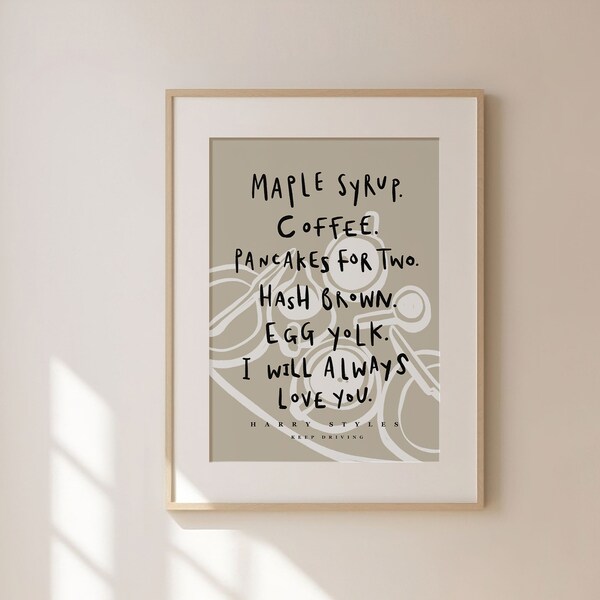 MAPLE SYRUP.
COFFEE.
PANCAKES FOR TWO.
HASH BROWN.
EGG YOLK.
I WILL ALWAYS
LOVE YOU.
HARRY STYLES
KEEP DRIVING